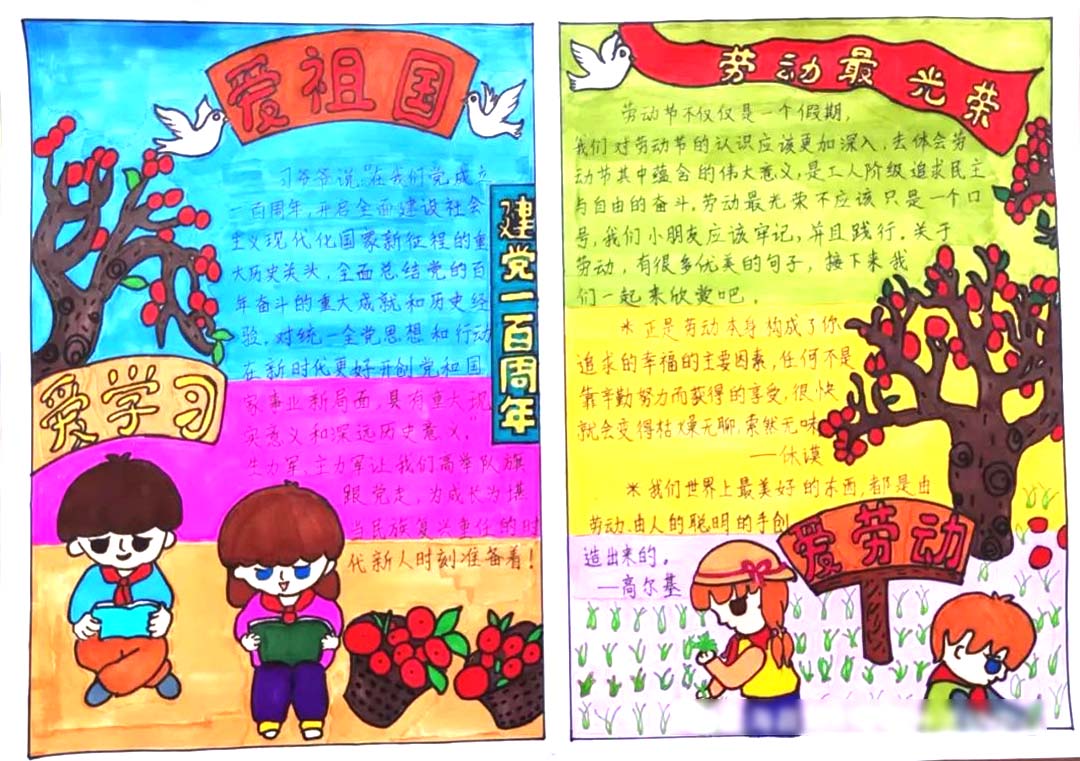 爱祖国
习爷爷说:“在我们党成立
一百周年,开启全面建设社会
主义现代化国家新征程的重
大历史关头,全面总结党的百
年奋斗的重大成就和历史经
验,对统一全党思想和行动
在新时代更好开创党和国
家事业新局面,具有重大现
实意义和深远历史意义。
生力军、主力军让我们高举队旗
跟党走,为成长为堪
当民族复兴重任的时
代新人时刻准备着!
建党一百周年
爱学习
劳动最光荣
劳动节不仅仅是一个假期,
我们对劳动节的认识应该更加深入,去体会劳
动节其中蕴含的伟大意义,是工人阶级追求民主
与自由的奋斗.劳动最光荣不应该只是一个口
号,我们小朋友应该牢记,并且践行.关于
劳动,有很多优美的句子,接下来我
们一起来欣赏吧。
*正是劳动本身构成了你
追求的幸福的主要因素,任何不是
靠辛勤努力而获得的享受,很快
就会变得枯燥无聊,索然无味
—休谟
*我们世界上最美好的东西,都是由
劳动、由人的聪明的手创
造出来的。
—高尔基
爱劳动